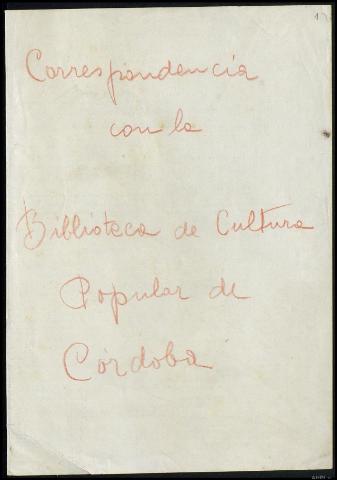 Correspondencia
con la
Biblioteca de Cultura
Popular de
Córdoba